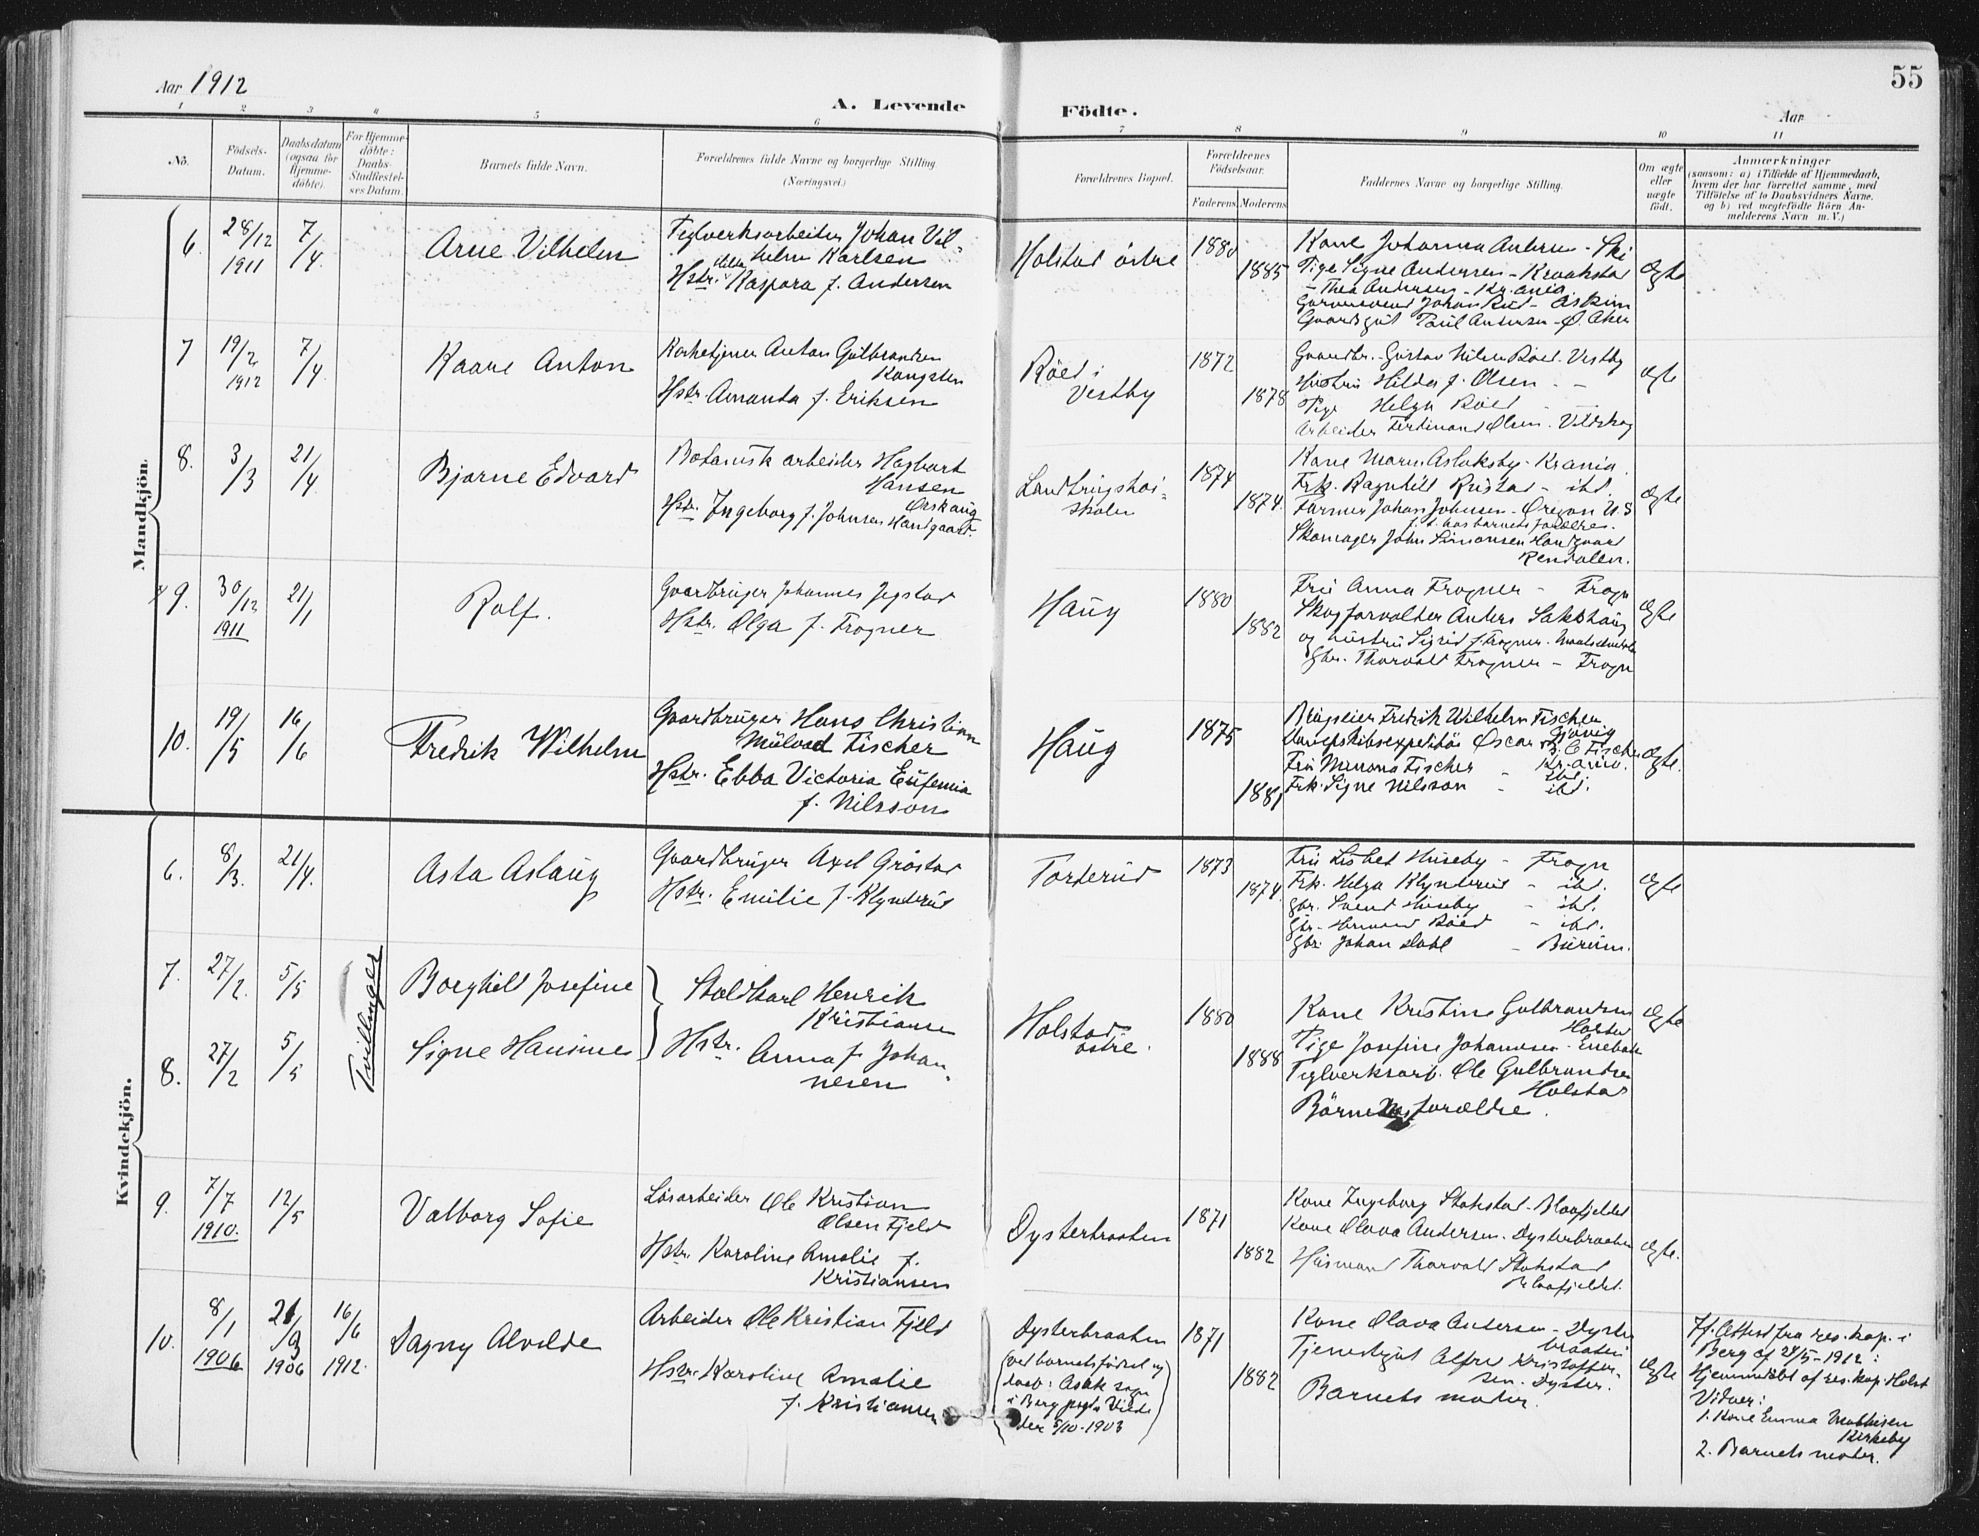 Aar 1912
A. Levende Födte.
55
Aar
1 2 3 4 5 6 7 8 9 10 11
No.
Födsels-Datum.
Daabsdatum (ogsaa for Hjemme-döbte).
For Hjemme-döbte: Daabs-Stadfestel-ses Datum.
Barnets fulde Navn.
Forældrenes fulde Navne og borgerlige Stilling (Næringsvei.)
Forældrenes Bopæl.
Forældrenes Födselsaar.
Faderens. Moderens.
Faddernes Navne og borgerlige Stilling.
Om ægte eller uægte födt.
Anmærkninger
(saasom: a) i Tilfælde af Hjemmedaab,
hvem der har forrettet samme, med
Tilföielse af to Daabsvidners Navne.
og b) ved uægtefödte Börn An-
melderens Navn m. V.)
Mandkjön.
6. 28/12 1911 7/4
Arne Vilhelm
Teglverksarbeider Johan Vil-
helm Karlsen
Hstr. Kaspara f. Andersen
Holstad östre
1880
1885
Kone Johanna Andersen - Ski
Pige Signe Andersen - Kraakstad
- Thea Andersen - Kr.ania
Garversvend Johan Rud - Askim
Gaardsgut Paul Andersen - Ö. Aker
Ægte
7 19/2 1912 7/4
Kaare Anton
Anton Gulbrandsen
Kongsten
Hstr. Amanda f. Eriksen
Röed i
Vestby
1872
1878
Gaardbr. Gustav Nilsen Röed. Vestby
Hustru Hilda f. Olsen - -
Pige Helga Röed - -
Arbeider Ferdinand Olsen.
Ægte
8. 3/3 21/4
Bjarne Edvard
Botanisk arbeider Hagbart
Hansen
Ørskaug
Hstr. Ingeborg f. Johnsen Handgaard.
Landbrugshöi-
skolen
1874
1874.
Kone Maren Aslaksby - Krania.
Frk. Ragnhild Rustad - ibd.
Farmer Johan Johnsen - Oregon U.S
f. t. hos barnets forældre.
Skomager John Simonsen Handgaard
Rendalen.
Ægte
9. 30/12 1911 21/1
Rolf.
Gaardbruger Johannes Jegstad
Hstr. Olga f. Frogner
Haug
1880
1882
Fru Anna Frogner - Frogn
Skogforvalter Anders Sakshaug
og hustru Sigrid f. Frogner.
Gbr. Thorvald Frogner - Frogn
Ægte
10. 19/5 16/6
Fredrik Wilhelm
Gaardbruger Hans Christian
Mülvad Fischer
Hstr. Ebba Victoria Eufemia
f. Nilsson
Haug
1875
1881
Brugseier Fredrik Wilhelm Fischer
Gjövig
Dampskibsexpeditör Oscar B. C Fischer
Kr.ania.
Fru Minona Fischer - ibd
Frk. Signe Nilsson - ibd.
Ægte.
Kvindekjön.
6. 8/3. 21/4.
Asta Aslaug
Gaardbruger Axel Gröstad
Hstr. Emilie f. Klynderud
Torderud
1873
1874.
Fru Lisbet Huseby - Frogn
Frk. Helga Klynderud - ibd.
Gbr. Svend Huseby - ibd.
Gbr. Herman Röed - ibd.
Gbr. Johan Dahl - Bærum.
Ægte
7. 27/2. 5/5
Tvillinger
Borghild Josefine
8. 27/2 5/5
Signe Hansine
Staldkarl Henrik
Kristiansen
Hstr. Anna f. Johan-
nesen
Holstad
östre.
1880
1888
Kone Kristine Gulbrandsen
Holstad
Pige Josefine Johannesen - Enebak
Teglverksarb. Ole Gulbrandsen
Holstad
Börnenes forældre.
Ægte
9. 7/7 1910. 12/5
Valborg Sofie
Lösarbeider Ole Kristian
Olsen Fjeld
Hstr. Karoline Amalie f.
Kristiansen
Dysterbraaten
1871
1882
Kone Ingeborg Stokstad - Blaafjeldet
Kone Olava Andersen. Dysterbraaten
Husmand Thorvald Stokstad
Blaafjeldet.
Ægte.
10. 8/1 1906 21/9 1906 16/6 1912.
Dagny Alvilde
Arbeider Ole Kristian Fjeld
Hstr. Karoline Amalie
f. Kristiansen
Dysterbraaten
(ved barnets födsel og
daab: Asak sogn
i Berg
5/10-1903)
1871
1882
Kone Olava Andersen - Dyster
braaten
Tjenestegut Alfred Kristoffer-
sen. Dyster.
Barnets moder.
Ægte
Jf. Attest fra res. kap. i
Berg af 24/5-1912:
Hjemmedöbt af res. kap. Holst
Vidner:
1. Kone Emma Mathisen
Kirkeby
2. Barnets moder.